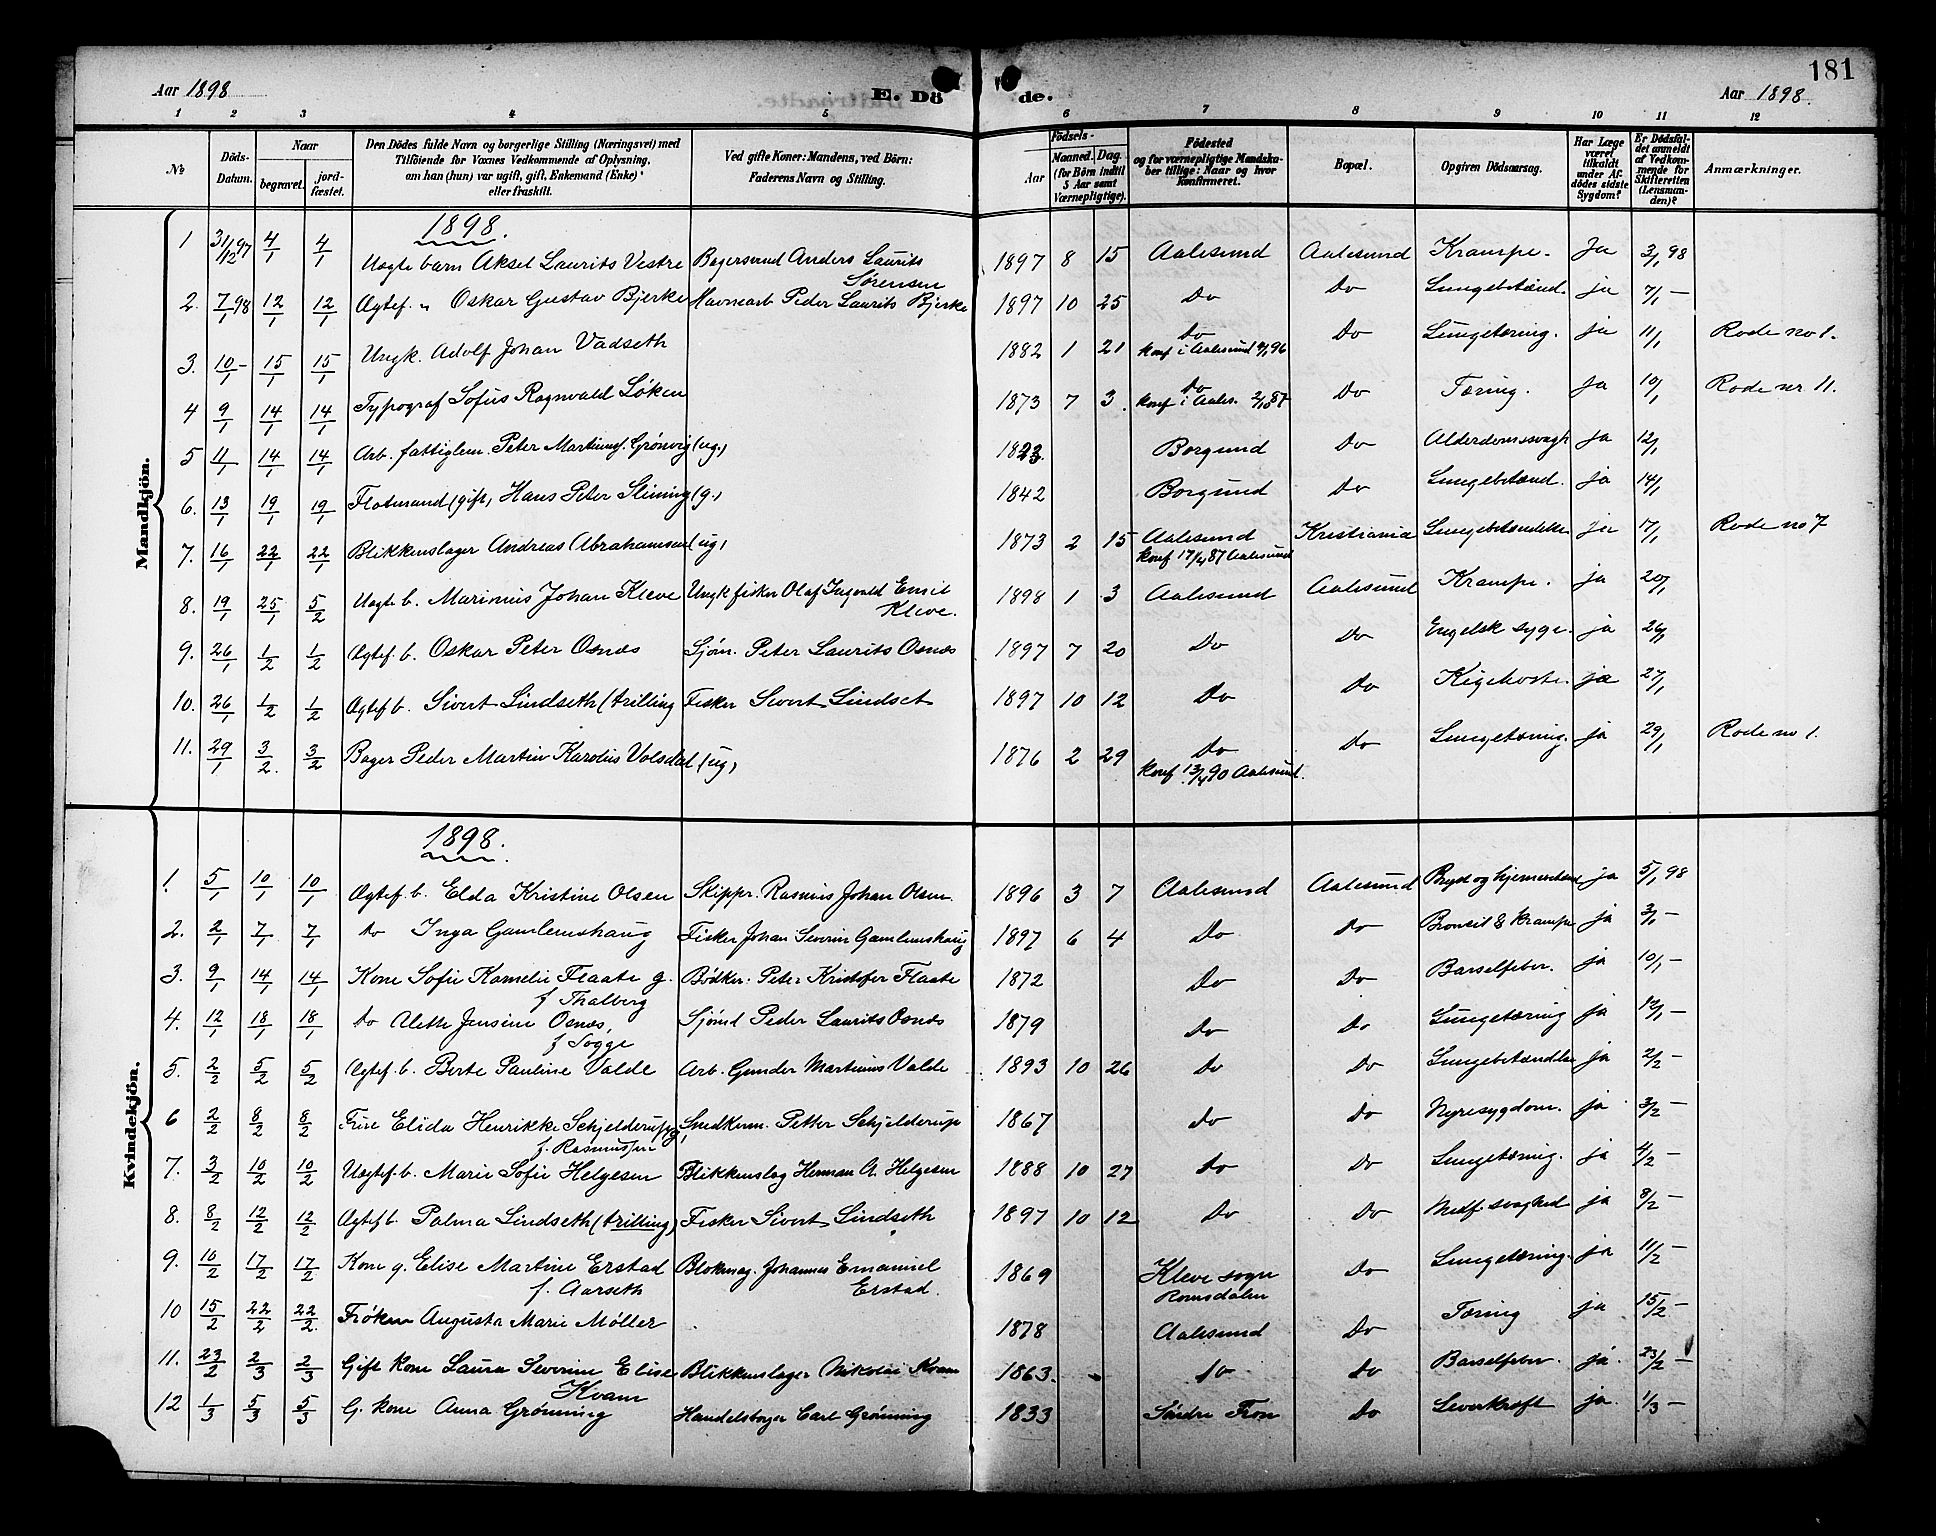 181
Aar 1898 E. Dö de. Aar 1898.
1 2 3 4 5 6 7 8 9 10 11 12
№ Döds-Datum. Naar begravet. jordfæstet. Den Dödes fulde Navn og borgerlige Stilling (Næringsvei) med Tilföiende for Voxnes Vedkommende af Oplysning, om han (hun) var ugift, gift, Enkemand (Enke) eller fraskilt. Ved gifte Koner: Mandens, ved Börn: Faderens Navn og Stilling. Födsels- Aar Maaned. Dag. (for Börn indtil 5 Aar samt Værnepligtige). Födested og for værnepligtige Mandskaber tillige: Naar og hvor konfirmeret. Bopæl. Opgiven Dödsaarsag. Har Læge været tilkaldt under Afdödes sidste Sygdom? Er Dödsfaldet anmeldt af Vedkommende for Skifteretten (Lensmanden)? Anmærkninger.
Mandkjön.
1898.
1 31/12 97 4/1 4/1 Uægte barn Aksel Laurits Vestre Bagersvend Anders Laurits Sørensen 1897 8 15 Aalesund Aalesund Krampe. Ja 3/1 98
2. 7/1 98 12/1 12/1 Ægtef. „ Oskar Gustav Bjerke Havnearb Peder Laurits Bjerke 1897 10 25 Do Do Lungebetænd. ja 7/1 —
3. 10/1 - 15/1 15/1 Ungk. Adolf Johan Vadseth 1882 1 21 Do konf i Aalesund 96 Do Lungetæring. ja 11/1 Rode no 1.
4 9/1 14/1 14/1 Typograf Sofus Ragnvald Løken 1873 7 3. Do konf i Aales. 2/10 87 Do Tæring. ja 10/1 Rode nr 11.
5 11/1 14/1 14/1 Arb. fattiglem. Peter Martinus Grønvig (ug) 1823. Borgund Do Alderdomssvagh ja 12/1
6. 13/1 19/1 19/1 Flotmand (gift) Hans Peter Slining (g.) 1842 Borgund Do Lungebetænd. ja 14/1
7. 16/1 22/1 22/1 Blikkenslager Andreas Abrahamsen (ug) 1873 2 15 Aalesund konf 17/4 87 Aalesund Kristiania Lungebetændelse ja 17/1 Rode no 7
8. 19/1 25/1 5/2 Uægte b. Marinius Johan Kleve Ungk fisker Olaf Ingvald Emil Kleve. 1898 1 3 Aalesund Aalesund Krampe. ja 20/1
9. 26/1 1/2 1/2 Ægtef. b. Oskar Peter Osnæs Sjøm. Peter Laurits Osnæs 1897 7 20 Do Do Engelsk syge. ja 26/1
10. 26/1 1/2 1/2 Ægtef b. Sivert Lindseth (trilling Fisker Sivert Lindset 1897 10 12 Do Do Kighoste. ja 27/1
11. 29/1 3/2. 3/2 Bager Peder Martin Karolius Volsdal (ug) 1876 2 29 Do konf 13/4 90 Aalesund. Do Lungetæring. ja 29/1 Rode no 1.
Kvindekjön.
1898.
1. 5/1 10/1 10/1 Ægtef. b. Elda Kristine Olsen Skippr. Rasmus Johan Olsen. 1896 3 7 Aalesund Aalesund Bryst og hjernebetænd ja 5/1 98
2. 2/1 7/1 7/1 Do Inga Gamlemshaug Fisker Johan Severin Gamlemshaug 1897 6 4 Do Do Bronsit & krampe ja 3/1 —
3. 9/1 14/1 14/1 Kone Sofie Kornelie Flaate g. f Thalberg Bødker. Peter Kristofer Flaate 1872 Do Do Barselfeber. ja 10/1 —
4. 12/1 18/1 18/1 Do Alette Jensine Osnæs, f Sogge Sjømd Peder Laurits Osnæs 1879 Do Do Lungetæring ja 12/1 —
5. 2/2 5/2 5/2 Ægtef. b. Berte Pauline Valde Arb. Gunder Martinus Valde 1893 10 26 Do Do Lungebetændlse ja 2/2 —
6 2/2 8/2 8/2 Frue Elida Henrikke Schjelderup g, f. Rasmussen Snedkerm. Petter Schjelderup 1867 Do Do Nyresygdom. ja 3/2 —
7. 3/2 10/2 10/2 Uægtef. b. Marie Sofie Helgesen Blikkenslag Herman A. Helgesen 1888 10 27 Do Do Lungetæring. ja 4/2 —
8. 8/2 12/2 12/2 Ægtef b. Palma Lindseth (trilling) Fisker Sivert Lindseth 1897 10 12 Do Do Medf. svaghed ja 8/2 —
9. 10/2 17/2 17/2 Kone g. Elise Martine Erstad f. Aarseth Blokmag. Johannes Emanuel Erstad. 1869 Kleve sogn Romsdalen Do Lungetæring. ja 11/2 —
10 15/2 22/2 22/2. Frøken Augusta Marie Møller 1878 Aalesund Do Tæring ja 15/2 —
11. 23/2 2/3 2/3 Gift kone Laura Severine Elise Kvam Blikkenslager Nikolai Kvam 1863. Do Do Barselfeber. ja 23/2 —
12 1/3 5/3 5/3 G. kone Anna Grønning Handelsborger Carl Grønning 1833 Søndre Fron Do Leverkræft ja. 1/3 —